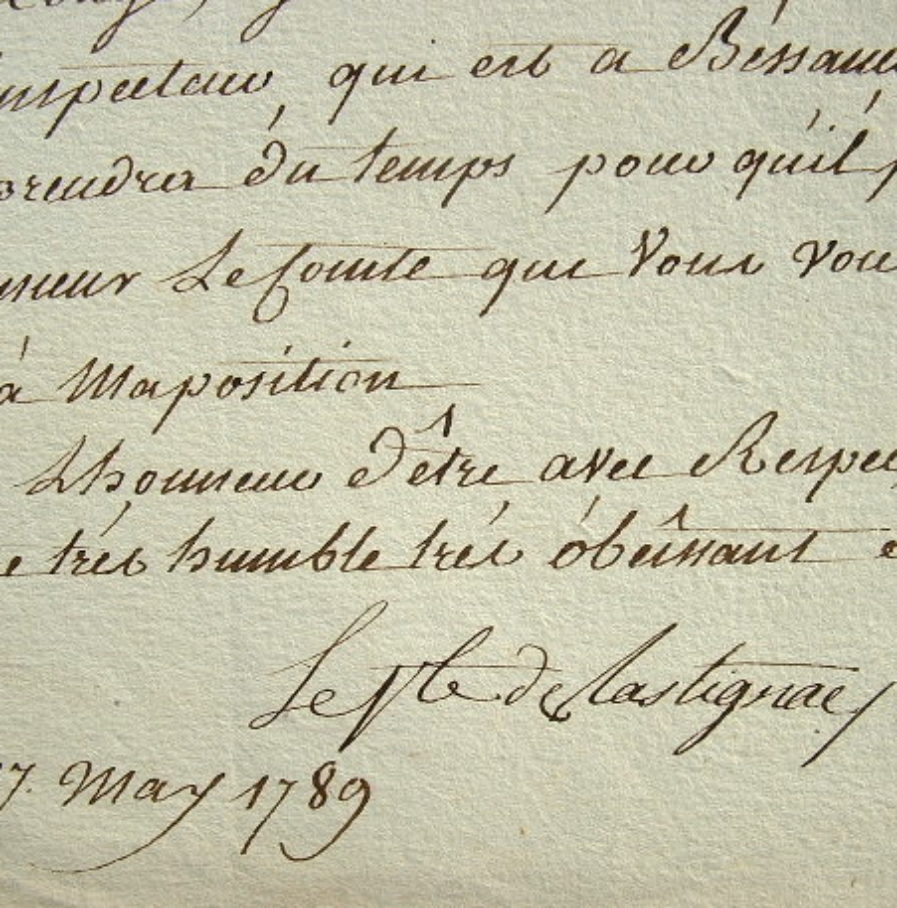 inspecteur, qui est a Bésanc
prendra du temps pour qu'il p
nsieur Le Comte que Vous vou
à Maposition
Lhonneur d'être avec Respec
e trés humble trés óbeîssant e
Le Vte de Lastignac
7. May 1789